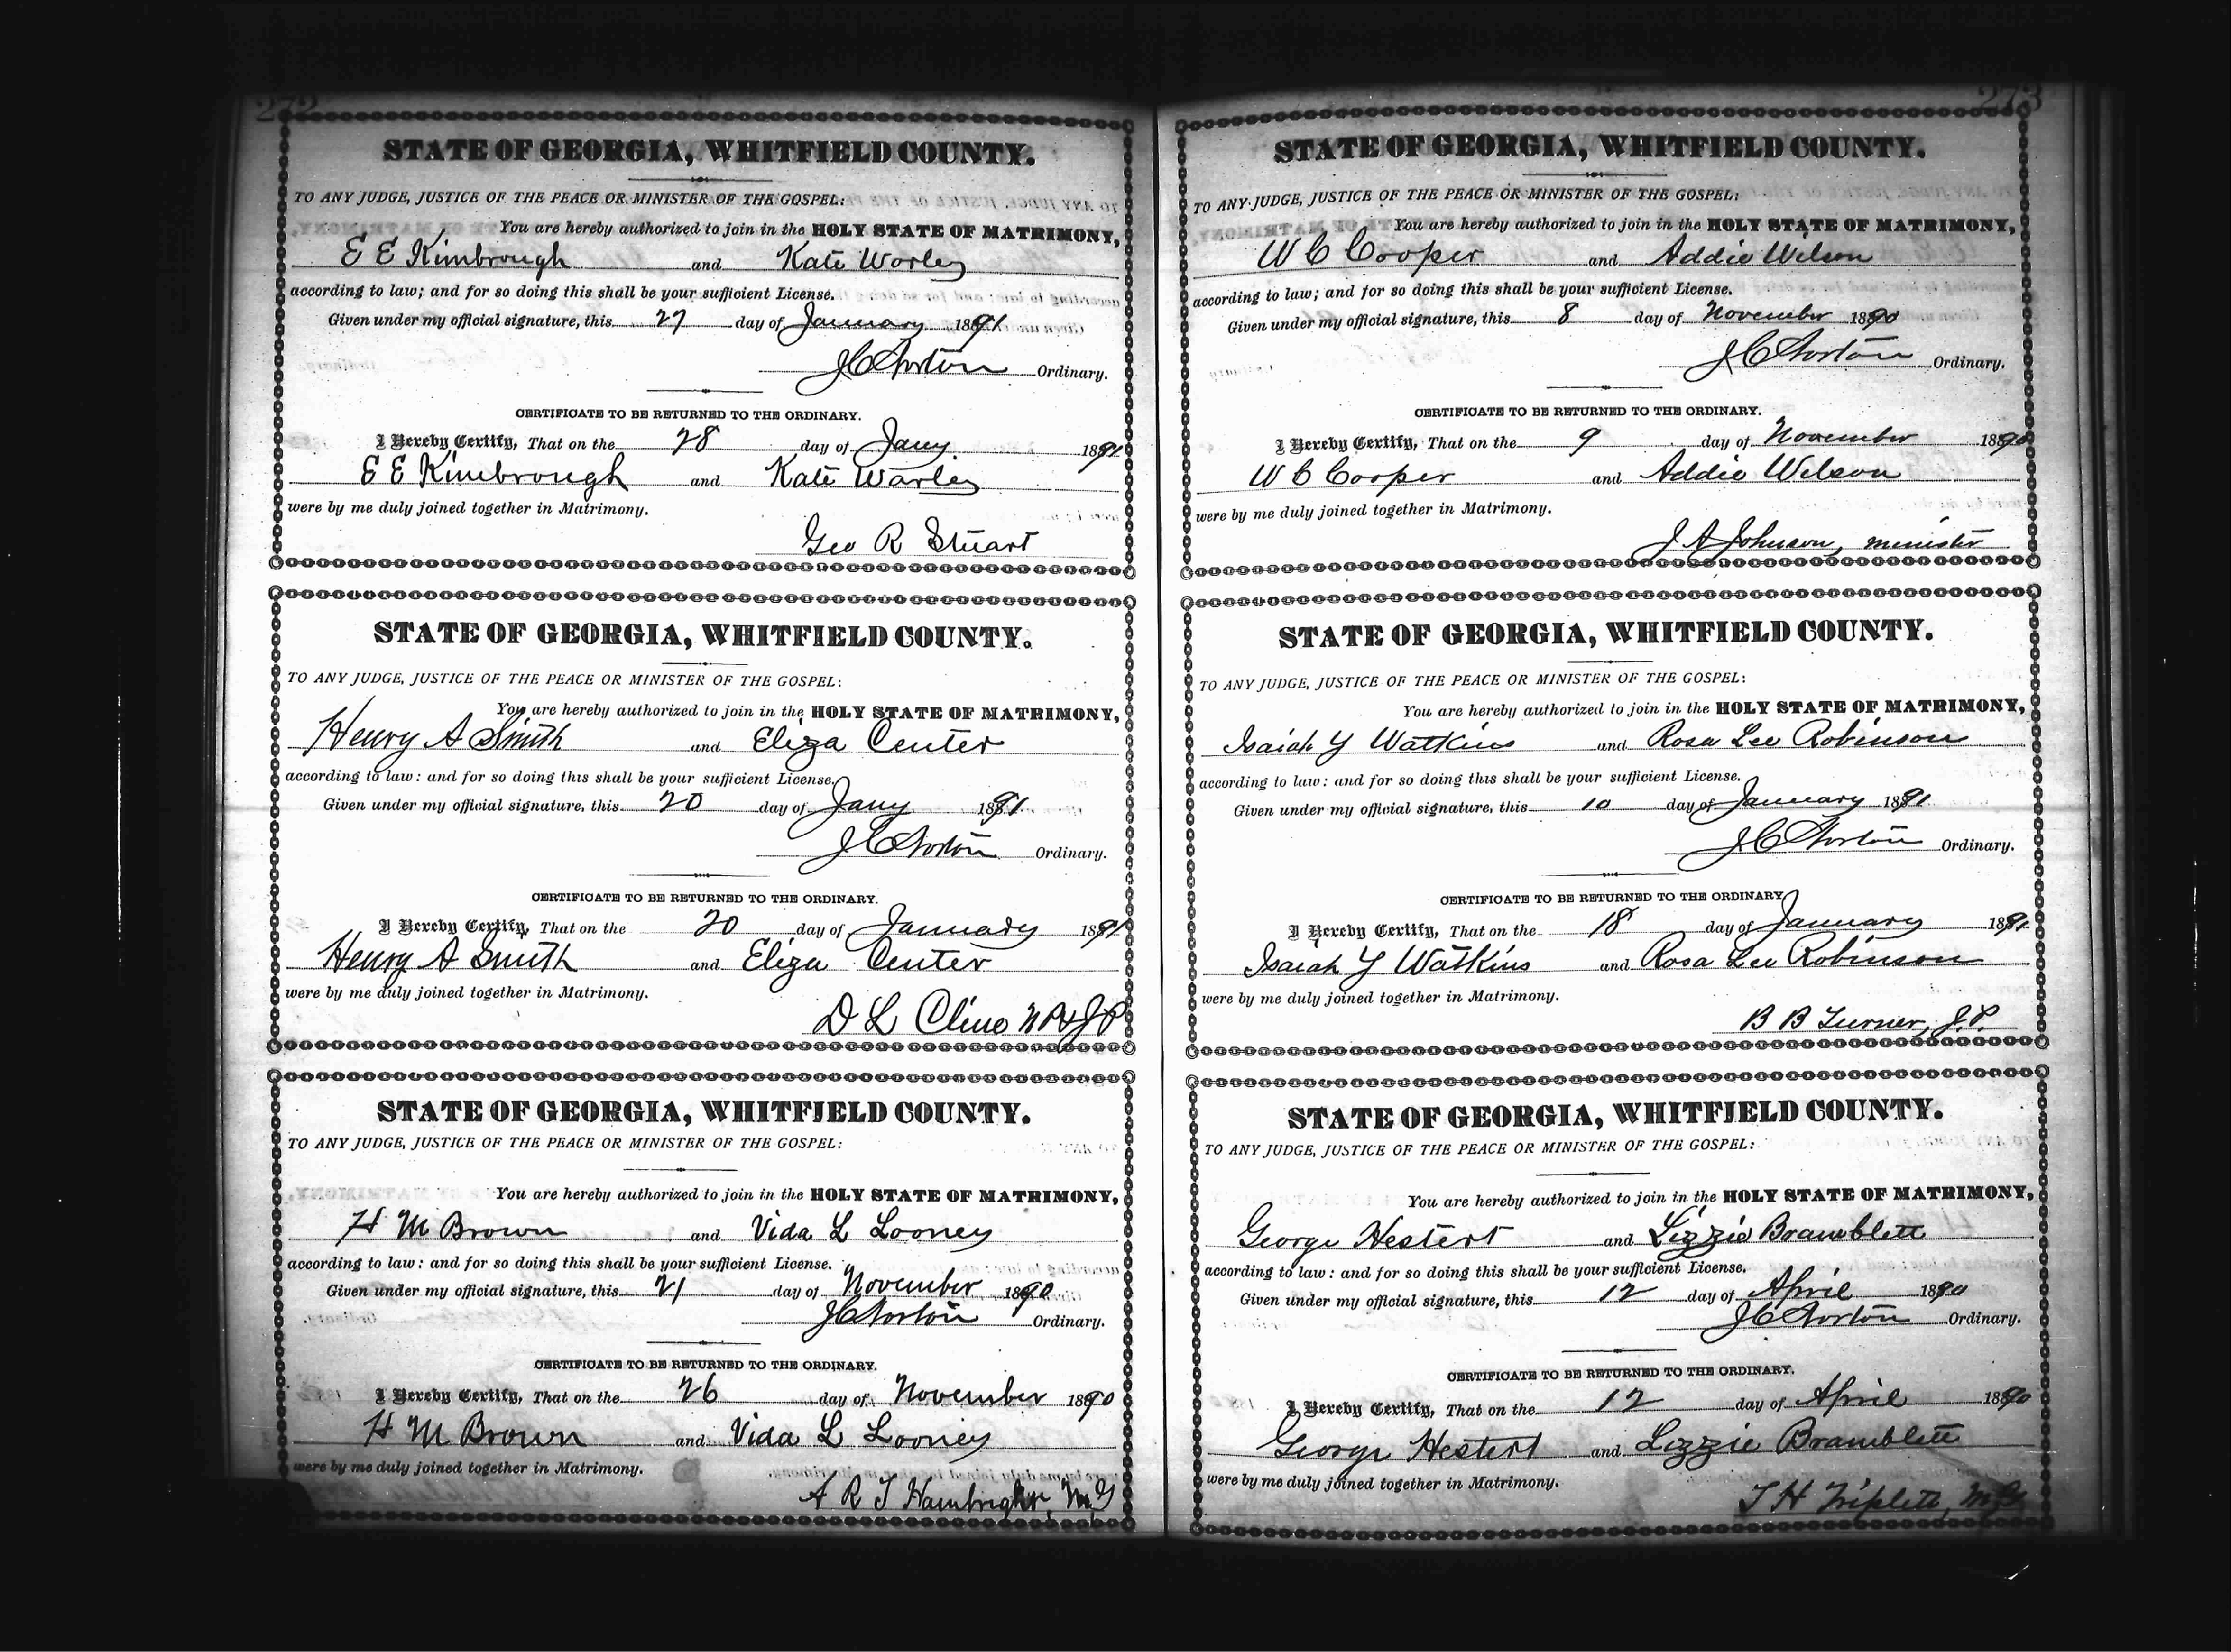 272
STATE OF GEORGIA, WHITFIELD COUNTY.
TO ANY JUDGE, JUSTICE OF THE PEACE OR MINISTER OF THE GOSPEL:
You are hereby authorized to join in the HOLY STATE OF MATRIMONY,
E E Kimbrough and Kate Worley
according to law; and for so doing this shall be your sufficient License.
Given under my official signature, this 27 day of January 1891
J C Norton Ordinary.
CERTIFICATE TO BE RETURNED TO THE ORDINARY.
I Hereby Certify, That on the 28 day of Jany. 1891
E E Kimbrough and Kate Warley
were by me duly joined together in Matrimony.
Geo R Stuart
STATE OF GEORGIA, WHITFIELD COUNTY.
TO ANY JUDGE, JUSTICE OF THE PEACE OR MINISTER OF THE GOSPEL:
You are hereby authorized to join in the HOLY STATE OF MATRIMONY,
Henry A Smith and Eliza Center
according to law: and for so doing this shall be your sufficient License.
Given under my official signature, this 20 day of Jany 1891
J C Norton Ordinary.
CERTIFICATE TO BE RETURNED TO THE ORDINARY.
I Hereby Certify, That on the 20 day of January 1891
Henry A Smith and Eliza Center
were by me duly joined together in Matrimony.
D L Cline N P & J P
STATE OF GEORGIA, WHITFIELD COUNTY.
TO ANY JUDGE, JUSTICE OF THE PEACE OR MINISTER OF THE GOSPEL:
You are hereby authorized to join in the HOLY STATE OF MATRIMONY,
H M Brown and Vida L Looney
according to law: and for so doing this shall be your sufficient License.
Given under my official signature, this 21 day of November 1890
J C Norton Ordinary.
CERTIFICATE TO BE RETURNED TO THE ORDINARY.
I Hereby Certify, That on the 26 day of November 1890
H M Brown and Vida L Looney
were by me duly joined together in Matrimony.
A R T Hambright, M G
273
STATE OF GEORGIA, WHITFIELD COUNTY.
TO ANY JUDGE, JUSTICE OF THE PEACE OR MINISTER OF THE GOSPEL:
You are hereby authorized to join in the HOLY STATE OF MATRIMONY,
W C Cooper and Addie Wilson
according to law; and for so doing this shall be your sufficient License.
Given under my official signature, this 8 day of November 1890
J C Norton Ordinary.
CERTIFICATE TO BE RETURNED TO THE ORDINARY.
I Hereby Certify, That on the 9 day of November 1890
W C Cooper and Addie Wilson
were by me duly joined together in Matrimony.
J A Johnson, minister
STATE OF GEORGIA, WHITFIELD COUNTY.
TO ANY JUDGE, JUSTICE OF THE PEACE OR MINISTER OF THE GOSPEL:
You are hereby authorized to join in the HOLY STATE OF MATRIMONY,
Isaiah Y Watkins and Rosa Lee Robinson
according to law: and for so doing this shall be your sufficient License.
Given under my official signature, this 10 day of January 1891
J C Norton Ordinary.
CERTIFICATE TO BE RETURNED TO THE ORDINARY
I Hereby Certify, That on the 18 day of January 1891
Isaiah Y Watkins and Rosa Lee Robinson
were by me duly joined together in Matrimony.
B B Turner, J. P.
STATE OF GEORGIA, WHITFIELD COUNTY.
TO ANY JUDGE, JUSTICE OF THE PEACE OR MINISTER OF THE GOSPEL:
You are hereby authorized to join in the HOLY STATE OF MATRIMONY,
George Hestert and Lizzie Bramblett
according to law: and for so doing this shall be your sufficient License.
Given under my official signature, this 12 day of April 1890
J C Norton Ordinary.
CERTIFICATE TO BE RETURNED TO THE ORDINARY.
I Hereby Certify, That on the 12 day of April 1890
George Hestert and Lizzie Bramblett
were by me duly joined together in Matrimony.
T H Triplett, M G